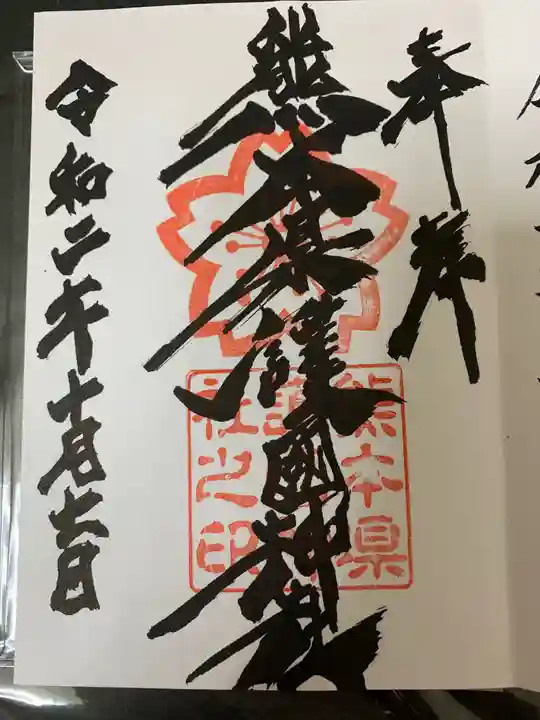 奉拝
熊本県護國神社
熊本県
護國神
社之印
令和二年十月十六日